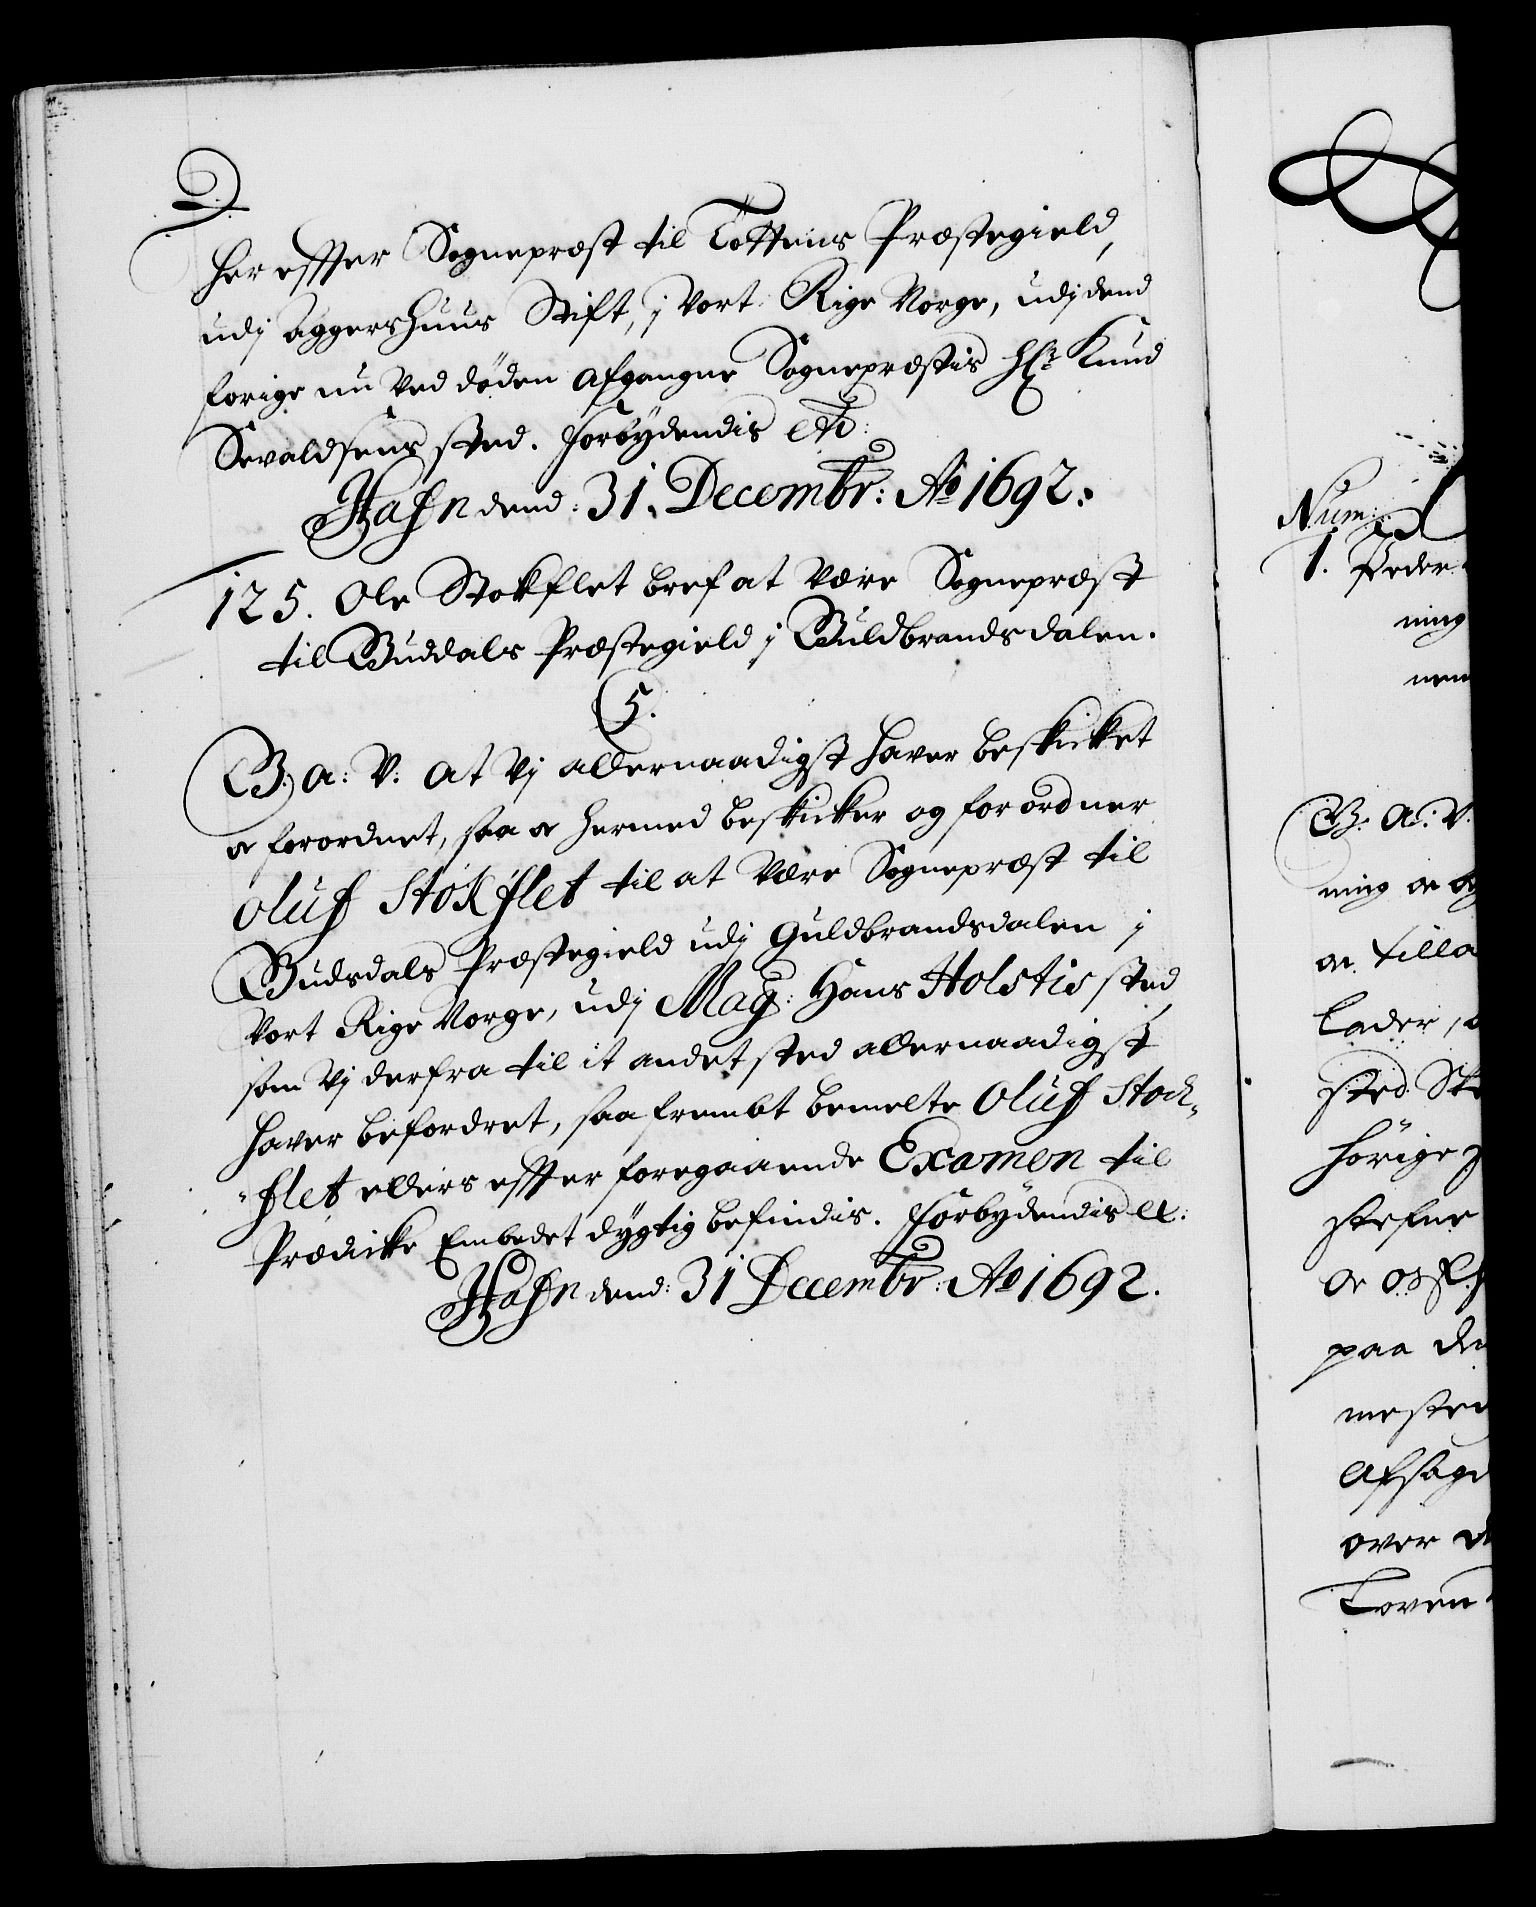 her effter Sognepræst til Tottens Præstegield,
udj Aggershuus Stift, j Vort Rige Norge, udj dend
forige nu Ved døden afgangne Sognepræstis Hr: Knud
Sevaldsens sted. Forbydendis etc:
Hafn dend: 31. Decembr: Ao 1692.
125. Ole Stokflet bref at Være Sognepræst
til Guddals Præstegield j Guldbrandsdalen.
C5.
G. A: V: at Vj allernaadigst hafver beskicket
oc forordnet, saa oc hermed beskicker og forordner
Oluf Stokflet til at Være Sognepræst til
Gudsdals Præstegield udj Guldbrandsdalen j
Vort Rige Norge, udj Mag: Hans Holstis sted
som Vj derfra til it andet sted allernaadigst
hafver befordret, saa frembt bemelte Oluf Stock-
flet ellers effter foregaaende Examen til
Prædicke Embedet dygtig befindis. Forbydendis etc:
Hafn dend: 31 Decembr: Ao 1692.
Num:
1. Peder
ning
nem
G. A: V.
ning oc
oc tilla
lader,
sted
hørige
stefne
oc
paa de
mested
afsage
over
Loven